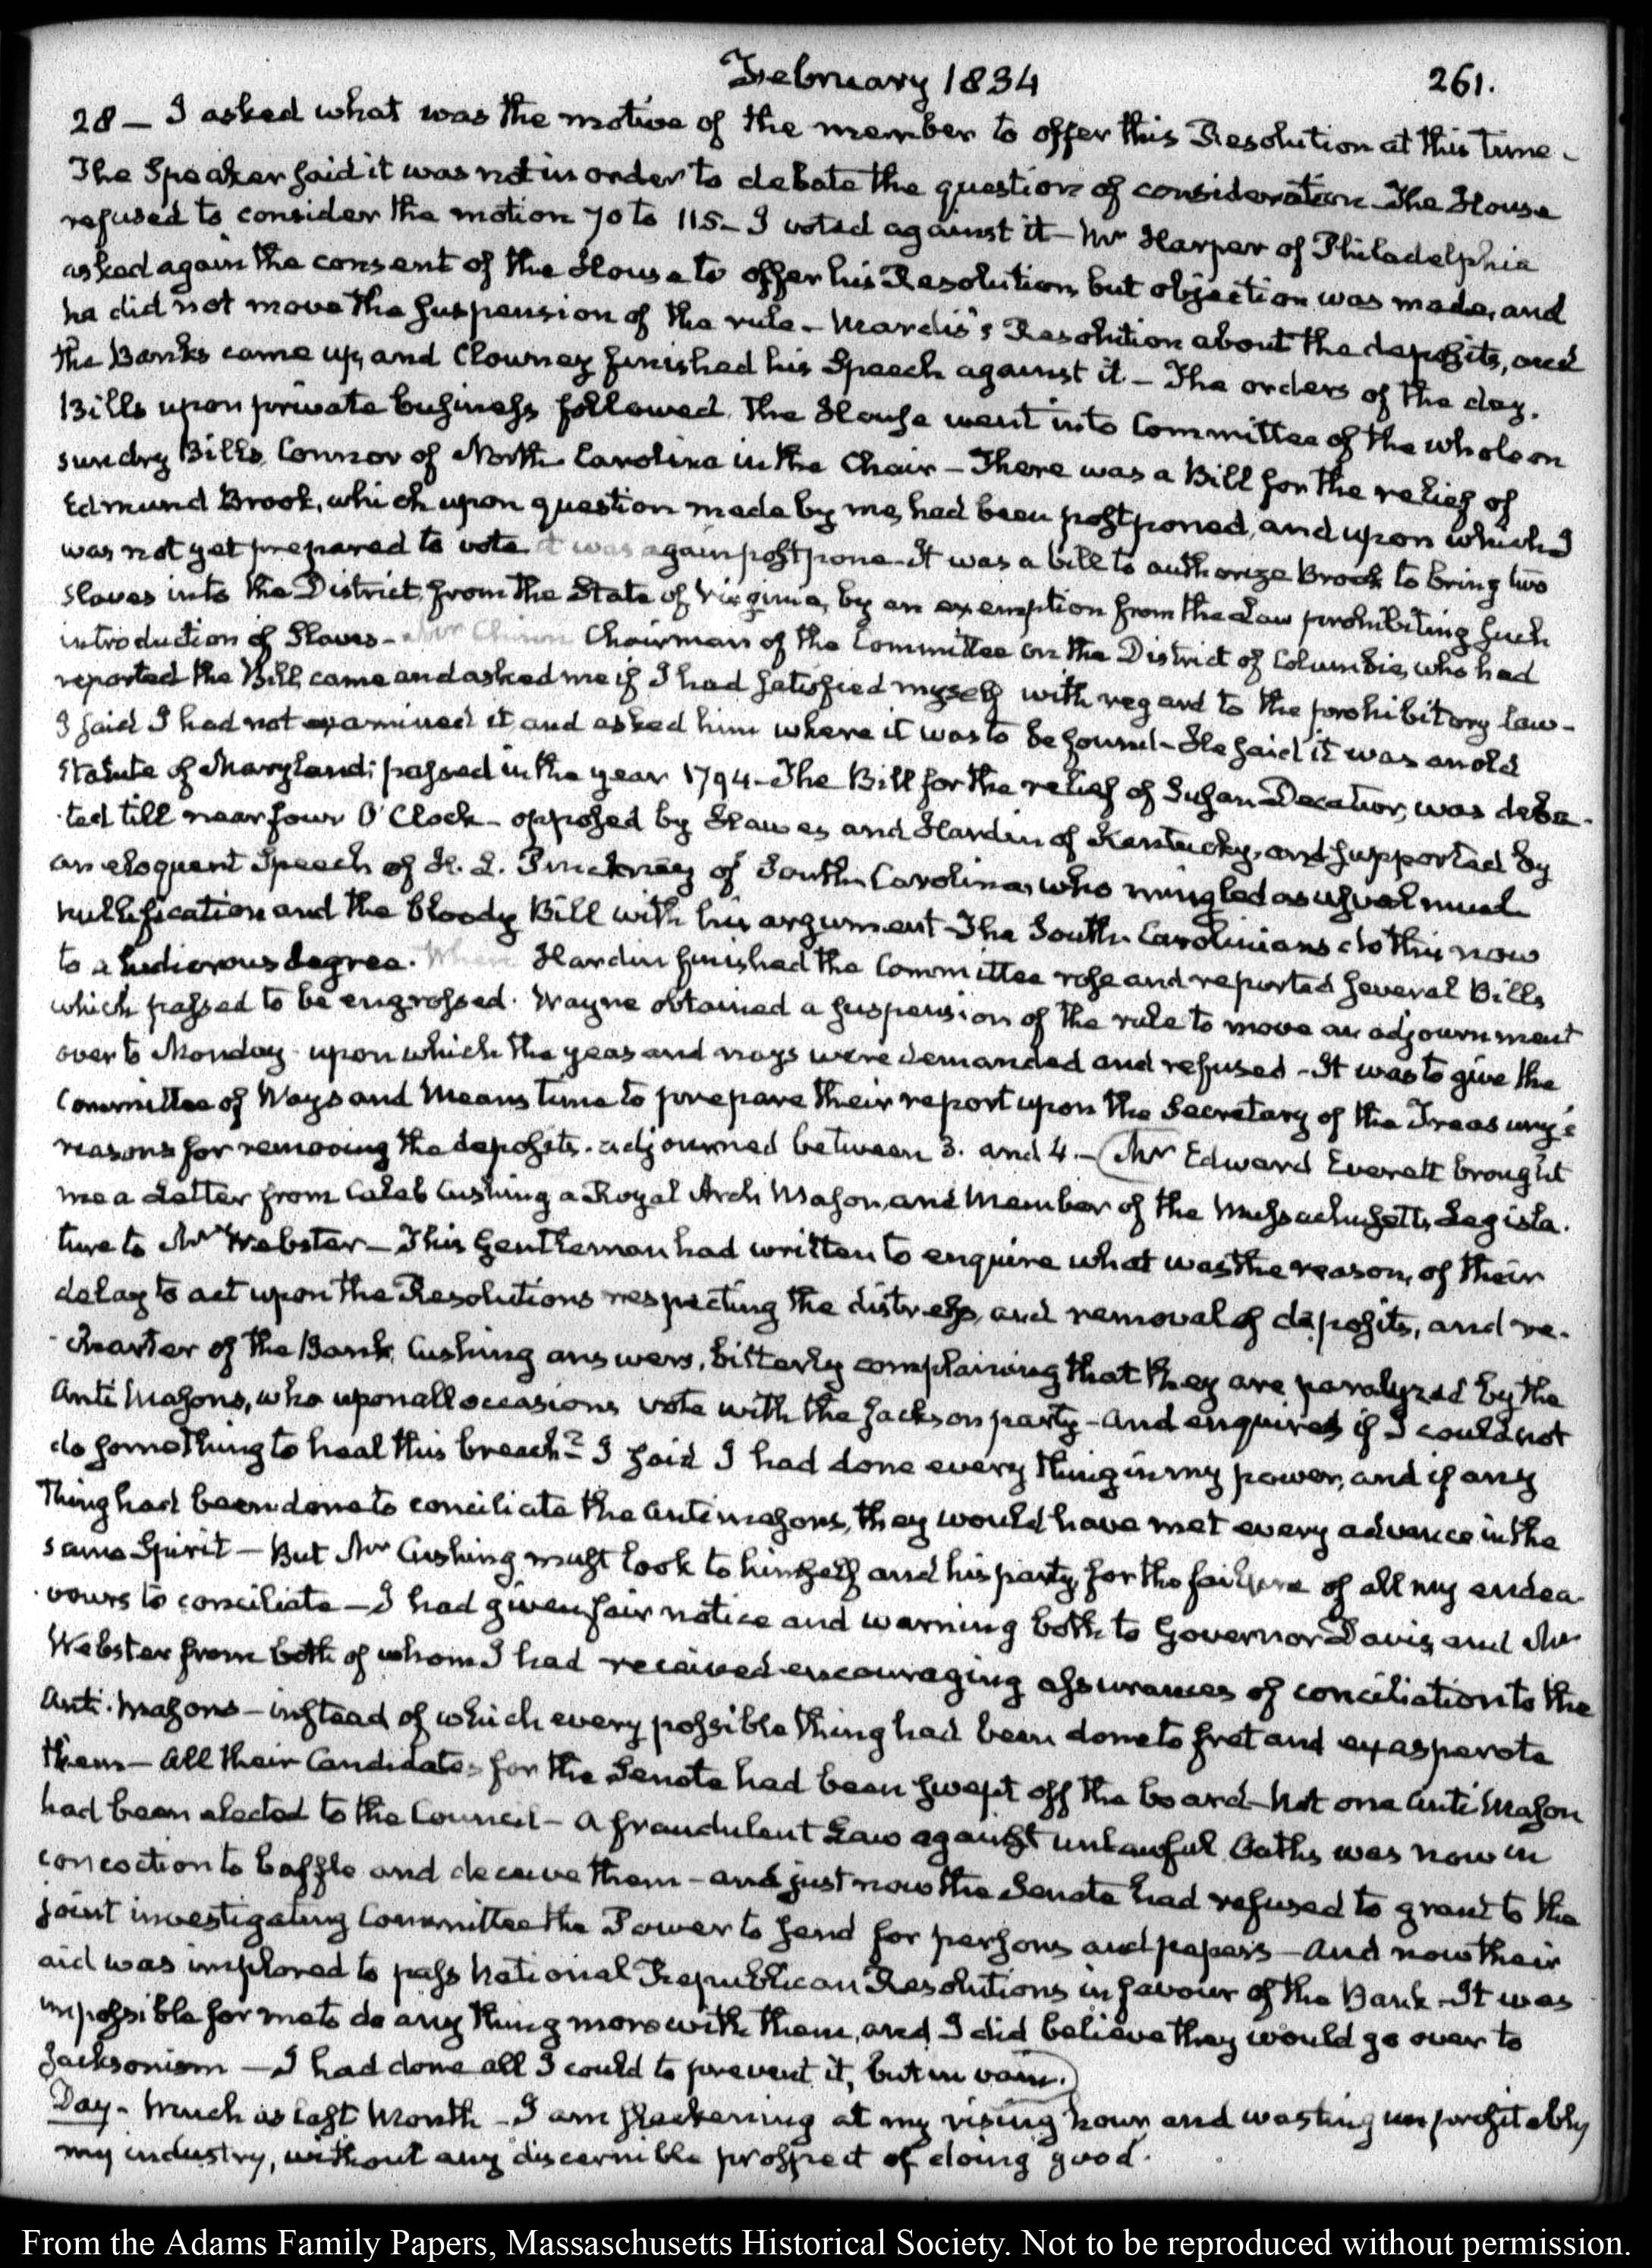 February 1834
261.
28 — I asked what was the motive of the member to offer this Resolution at this time –
The Speaker said it was not in order to debate the question of consideration – The House
refused to consider the motion 70 to 115 – I voted against it – Mr Harper of Philadelphia
asked again the consent of the House to offer his Resolution, but objection was made, and
he did not move the suspension of the rule – Mardis's Resolution about the deposits, and
the Banks came up, and Clowney finished his Speech against it – The orders of the day.
Bills upon private business followed. The House went into Committee of the whole on
sundry Bills, Connor of North Carolina in the Chair – There was a Bill for the relief of
Edmund Brook, which upon question made by me, had been postponed, and upon which I
was not yet prepared to vote it was again postpone – It was a bill to authorize Brook to bring two
Slaves into the District, from the State of Virginia, by an exemption from the Law prohibiting such
introduction of Slaves – Mr Chinn Chairman of the Committee on the District of Columbia, who had
reported the Bill, came and asked me if I had satisfied myself with regard to the prohibitory law –
I said I had not examined it, and asked him where it was to be found – He said it was an old
Statute of Maryland, passed in the year 1794 – The Bill for the relief of Susan Decatur, was deba-
ted till near four O'Clock – opposed by Hawes and Hardin of Kentucky, and supported by
an eloquent Speech of H. L. Pinckney of South Carolina, who mingled as usual much
nullification and the bloody Bill with his argument – The South Carolinians do this now
to a ludicrous degree. When Hardin finished the Committee rose and reported several Bills
which passed to be engrossed. Wayne obtained a suspension of the rule to move an adjournment
over to Monday upon which the yeas and nays were demanded and refused – It was to give the
Committee of Ways and Means time to prepare their report upon the Secretary of the Treasury's
reasons for removing the deposits. adjourned between 3. and 4. – (Mr Edward Everett brought
me a Letter from Caleb Cushing a Royal Arch Mason, and Member of the Massachusetts Legisla-
ture to Mr Webster – This Gentleman had written to enquire what was the reason, of their
delay to act upon the Resolutions respecting the distress, and removal of deposits, and re-
-charter of the Bank. Cushing answers, bitterly complaining that they are paralyzed by the
Anti Masons, who upon all occasions vote with the Jackson party – and enquires if I could not
do something to heal this breach? I said I had done every thing in my power, and if any
thing had been done to conciliate the Antimasons, they would have met every advance in the
same Spirit – But Mr Cushing must look to himself and his party, for the failure of all my endea-
-vours to conciliate – I had given fair notice and warning both to Governor Davis, and Mr
Webster from both of whom I had received encouraging assurances of conciliation to the
Anti-Masons – instead of which every possible thing had been done to fret and exasperate
them – All their Candidates for the Senate had been swept off the board – Not one Anti Mason
had been elected to the Council – A fraudulent Law against unlawful Oaths was now in
concoction to baffle and deceive them – and just now the Senate had refused to grant to the
joint investigating Committee the Power to send for persons and papers – And now their
aid was implored to pass National Republican Resolutions in favour of the Bank – It was
impossible for me to do any thing more with them, and I did believe they would go over to
Jacksonism — I had done all I could to prevent it, but in vain.)
Day – Much as last Month – I am slackening at my rising hour and wasting unprofitably
my industry, without any discernible prospect of doing good.
From the Adams Family Papers, Massaschusetts Historical Society. Not to be reproduced without permission.